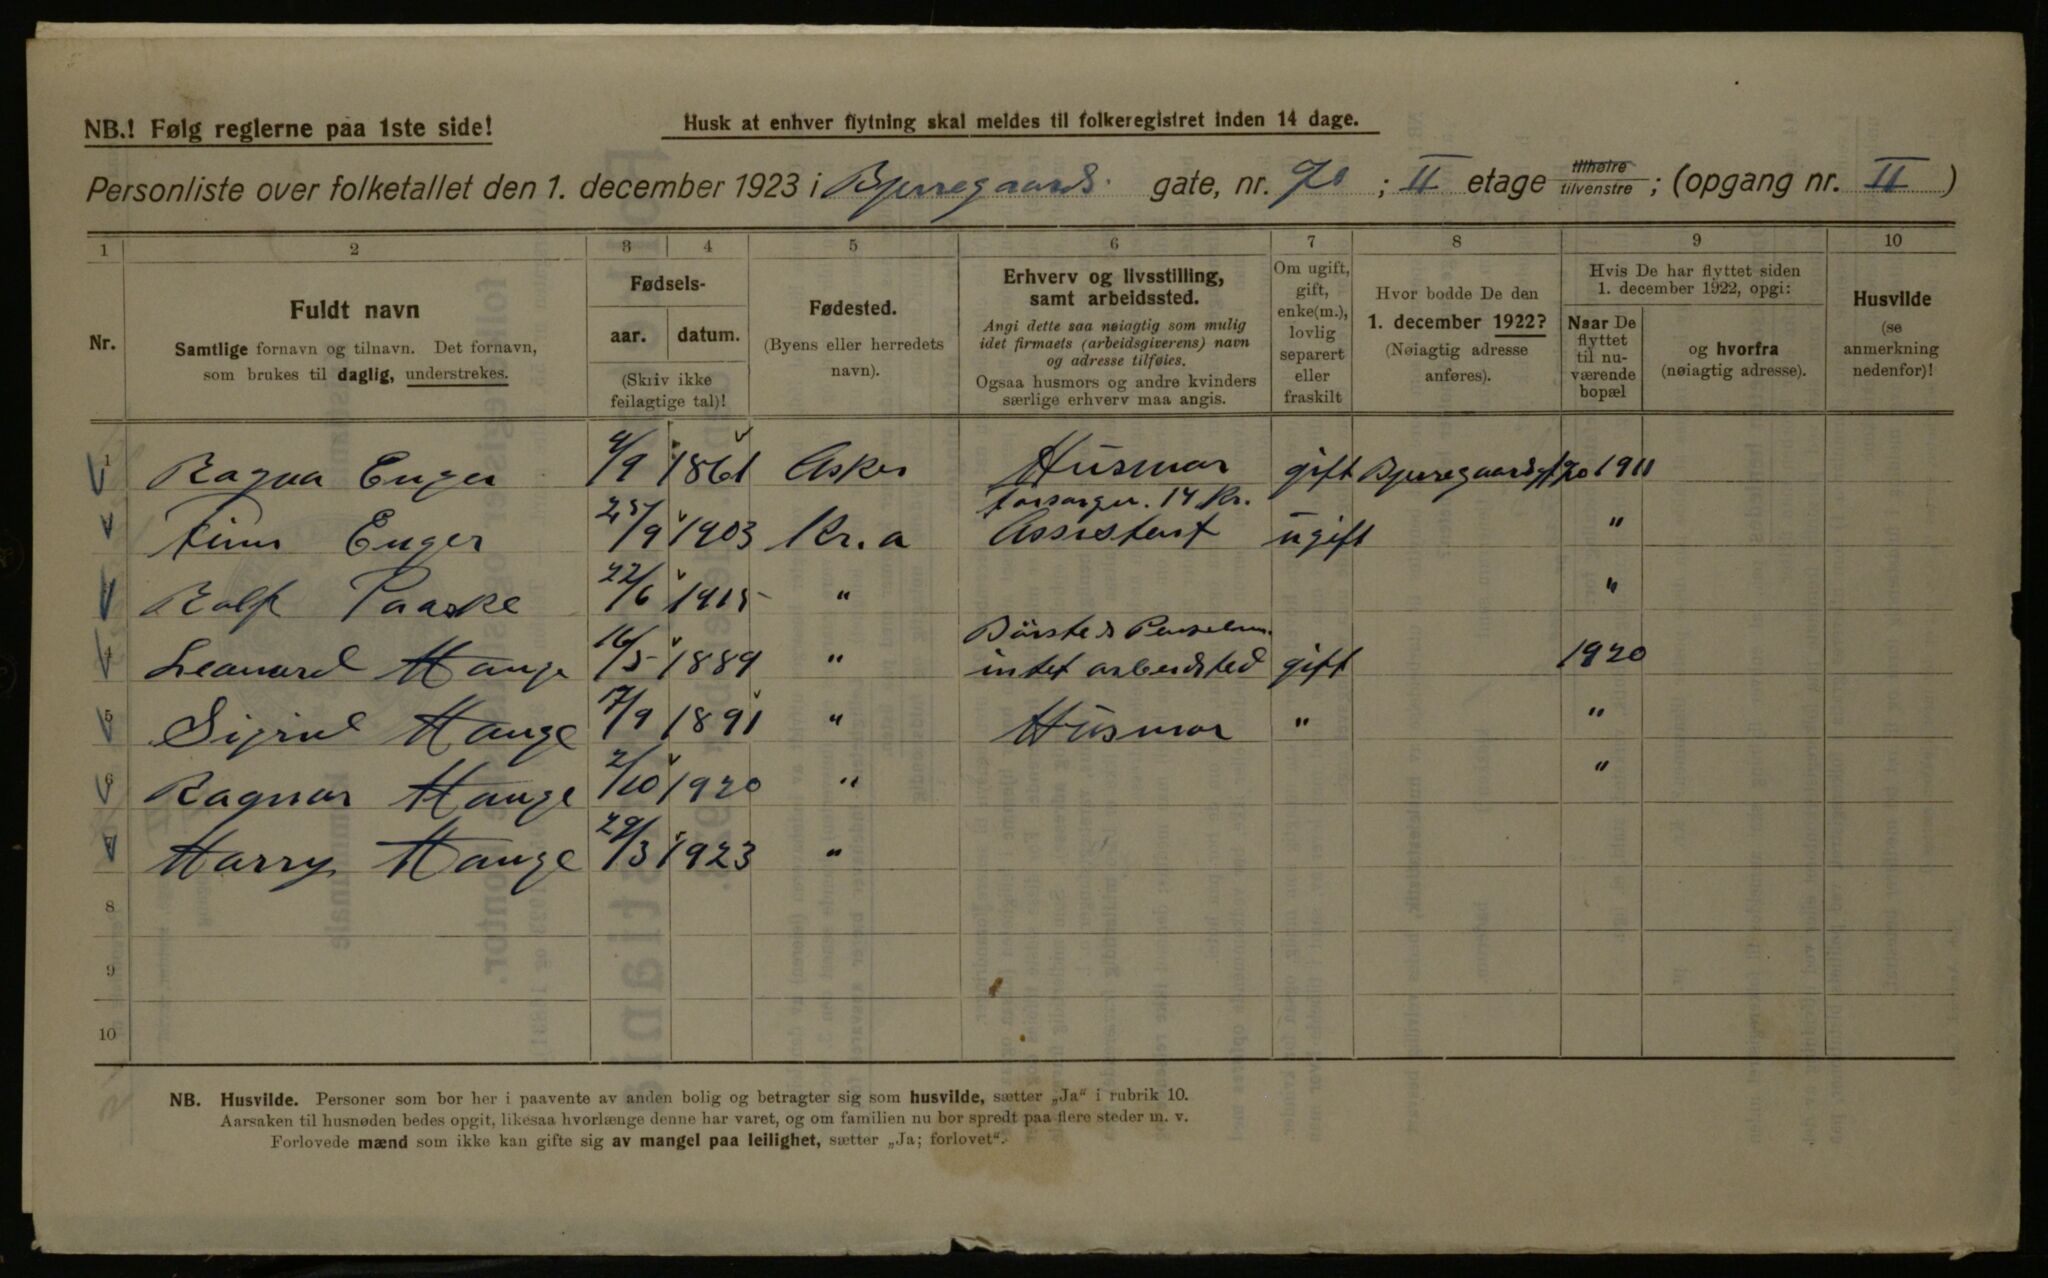 NB.! Følg reglerne paa 1ste side!
Husk at enhver flytning skal meldes til folkeregistret inden 14 dage.
Personliste over folketallet den 1. december 1923 i Bjerregaards gate, nr. 70 ; II etage tilhøire tilvenstre ; (opgang nr. II )
1 2 3 4 5 6 7 8 9 10
Nr.
Fuldt navn
Samtlige fornavn og tilnavn. Det fornavn,
som brukes til daglig, understrekes.
Fødsels-
aar. datum.
(Skriv ikke
feilagtige tal)!
Fødested.
(Byens eller herredets
navn).
Erhverv og livsstilling,
samt arbeidssted.
Angi dette saa nøiagtig som mulig
idet firmaets (arbeidsgiverens) navn
og adresse tilføies.
Ogsaa husmors og andre kvinders
særlige erhverv maa angis.
Om ugift,
gift,
enke(m.),
lovlig
separert
eller
fraskilt
Hvor bodde De den
1. december 1922?
(Nøiagtig adresse
anføres).
Hvis De har flyttet siden
1. december 1922, opgi:
Naar De
flyttet
til nu-
værende
bopæl
og hvorfra
(nøiagtig adresse).
Husvilde
(se
anmerkning
nedenfor)!
1 Ragna Enger 4/9 1861 Asker Husmor gift Bjerregaardsgt 70 1911
forsørger. 14 Kr.
Finn Enger 25/9 1903 Kr.a Assistent ugift "
Rolf Paaske 22/6 1915 " "
Børste & Penselm.
4 Leonard Hauge 16/5 1889 " intet arbeidsted gift 1920
5 Sigrid Hauge 17/9 1891 " Husmor " "
6 Ragnar Hauge 2/10 1920 " "
7 Harry Hauge 29/3 1923 "
8
9
10
NB. Husvilde. Personer som bor her i paavente av anden bolig og betragter sig som husvilde, sætter „Ja" i rubrik 10.
Aarsaken til husnøden bedes opgit, likesaa hvorlænge denne har varet, og om familien nu bor spredt paa flere steder m. v.
Forlovede mænd som ikke kan gifte sig av mangel paa leilighet, sætter „Ja; forlovet".